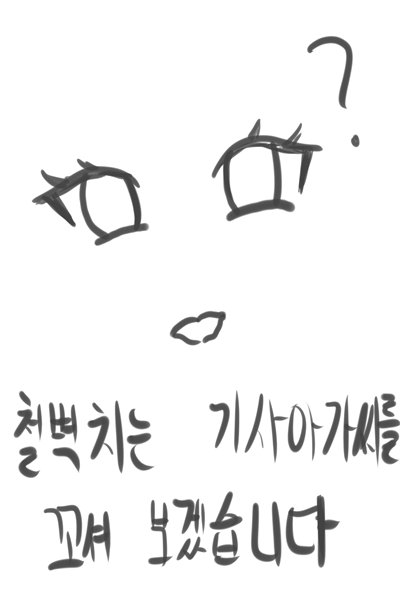 ?
철벽 치는 기사아가씨를
꼬셔 보겠습니다